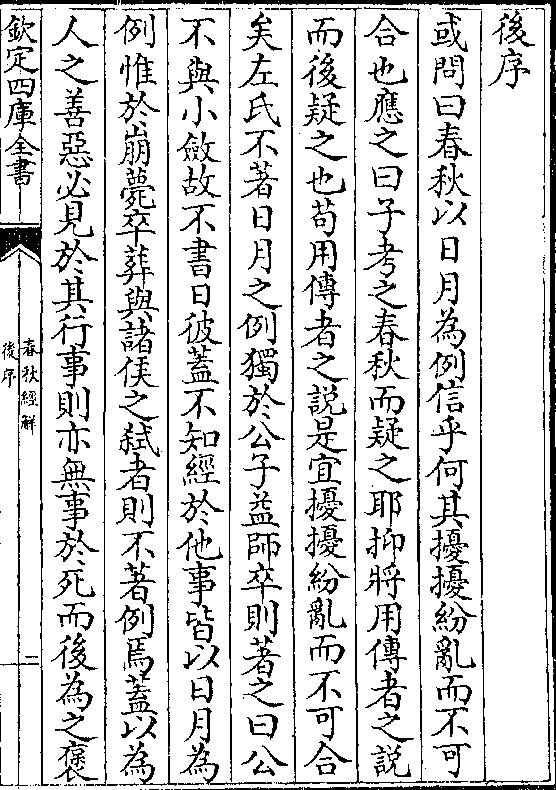 後序
或問曰春秋以日月為例信乎何其擾擾紛亂而不可
合也應之曰子考之春秋而疑之耶抑將用傳者之説
而後疑之也苟用傳者之説是宜擾擾紛亂而不可合
矣左氏不著日月之例獨於公子益師卒則著之曰公
不與小斂故不書日彼蓋不知經於他事皆以日月為
例惟於崩薨卒葬與諸侯之弑者則不著例焉蓋以為
人之善惡必見於其行事則亦無事於死而後為之褒
欽定四庫全書
春秋經解
後序
二